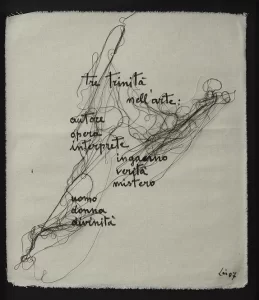 tre trinità
nell'arte:
autore
opera
interprete
inganno
verità
mistero
uomo
donna
divinità